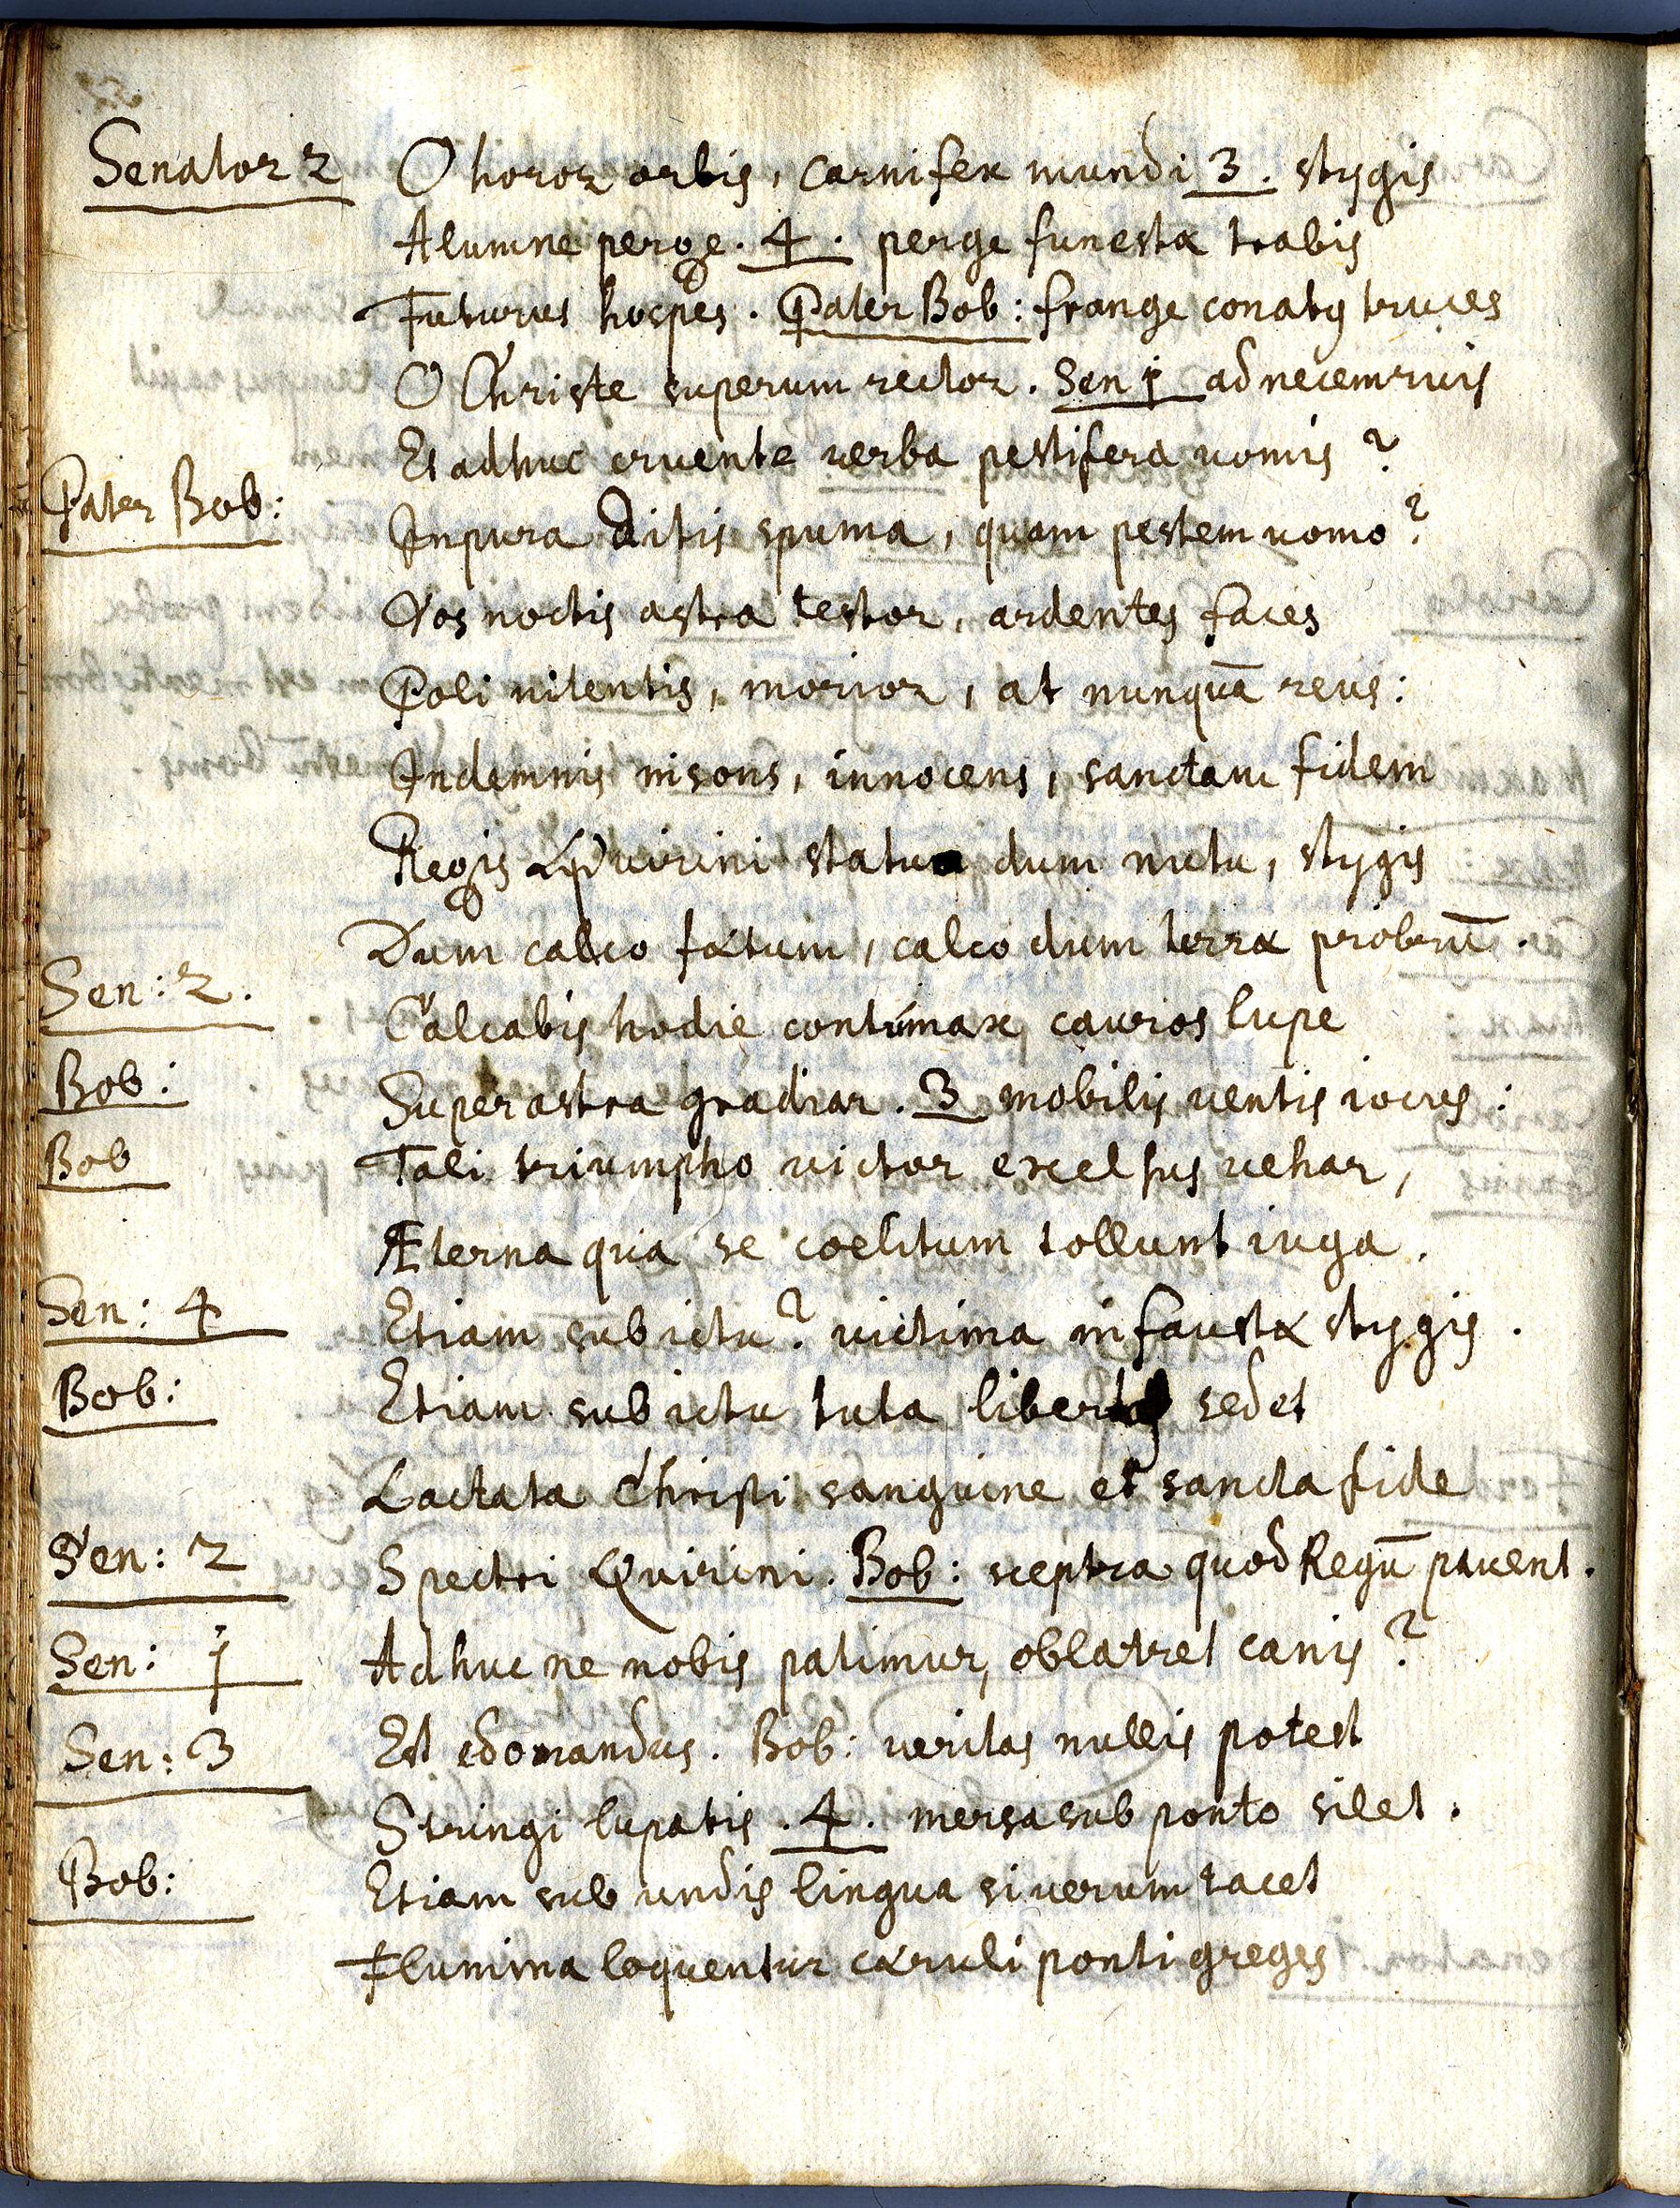 Senator 2 O horor orbis, carnifex mundi 3. stygis
Alumne perge. 4. perge funestæ trabis
Futurus hospes. Pater Bob: frange conatus truces
O Christe superum rector. Sen 1 ad necem ruis
Et adhuc cruente verba pestifera vomis?
Pater Bob: Inpura Ditis spuma, quam pestem vomo?
Vos noctis astra testor, ardentes faces
Poli nitentis, morior, at nunquā reus:
Indemnis insons, innocens, sanctam fidem
Regis Quirini statua dum nutu, stygis
Dum calco fætum, calco dum terræ probrū.
Sen: 2. Calcabis hodie contumax cauros lupe
Bob: Super astra gradiar. 3 mobilis ventis iocus:
Bob Tali triumpho victor excelsus vehar,
Æterna qua se coelitum tollunt iuga.
Sen: 4 Etiam sub ictu? victima infaustæ stygis.
Bob: Etiam sub ictu tuta libertas sedet
Lactata Christi sanguine et sancta fide
Sen: 2 Spectri Quirini. Bob: sceptra quod Regū pavent.
Sen: 1 Adhuc ne nobis patimur, oblatret canis?
Sen: 3 Est edomandus. Bob: veritas nullis potest
Stringi lupatis. 4. mersa sub ponto silet.
Bob: Etiam sub undis lingua si verum tacet
Flumina loquentur cæruli ponti greges